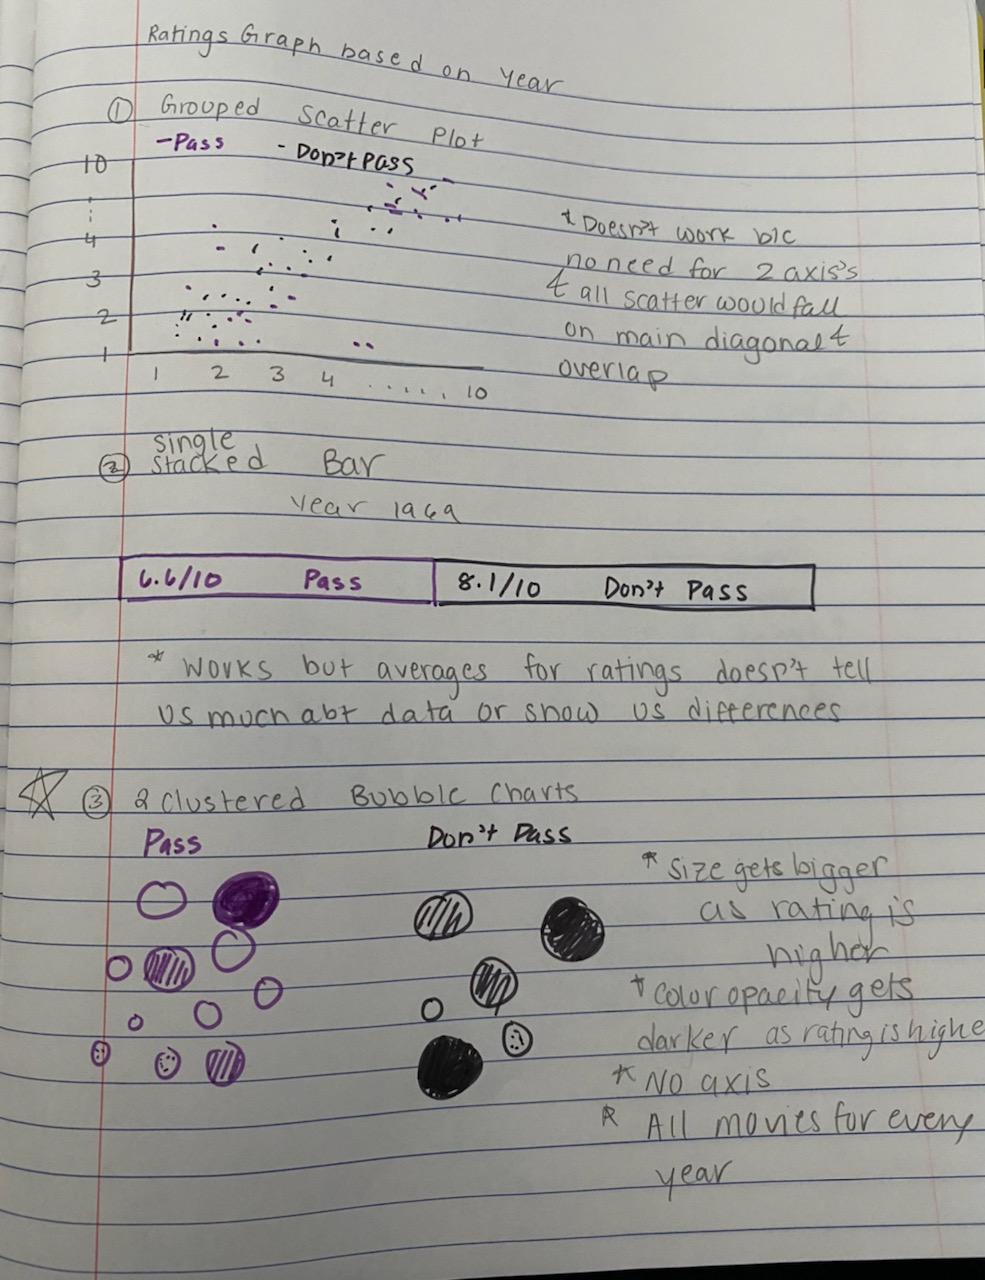 Ratings Graph based on year
① Grouped Scatter Plot
-Pass - Don't Pass
10
4
3
2
1
1 2 3 4 ...... 10
* Doesn't work b/c
no need for 2 axis's
& all scatter would fall
on main diagonal &
overlap
② Single
Stacked Bar
Year 1969
6.6/10 Pass 8.1/10 Don't Pass
* Works but averages for ratings doesn't tell
us much abt data or show us differences
③ 2 Clustered Bubble Charts
Pass Don't Pass
* Size gets bigger
as rating is
higher
* Color opacity gets
darker as rating is highe
* No axis
* All movies for every
year